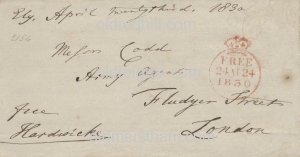 Ely, April twentythird. 1830
Messrs Codd
Army Agents
Fludyer Street
London
free
Hardwicke
FREE
24 24
1830